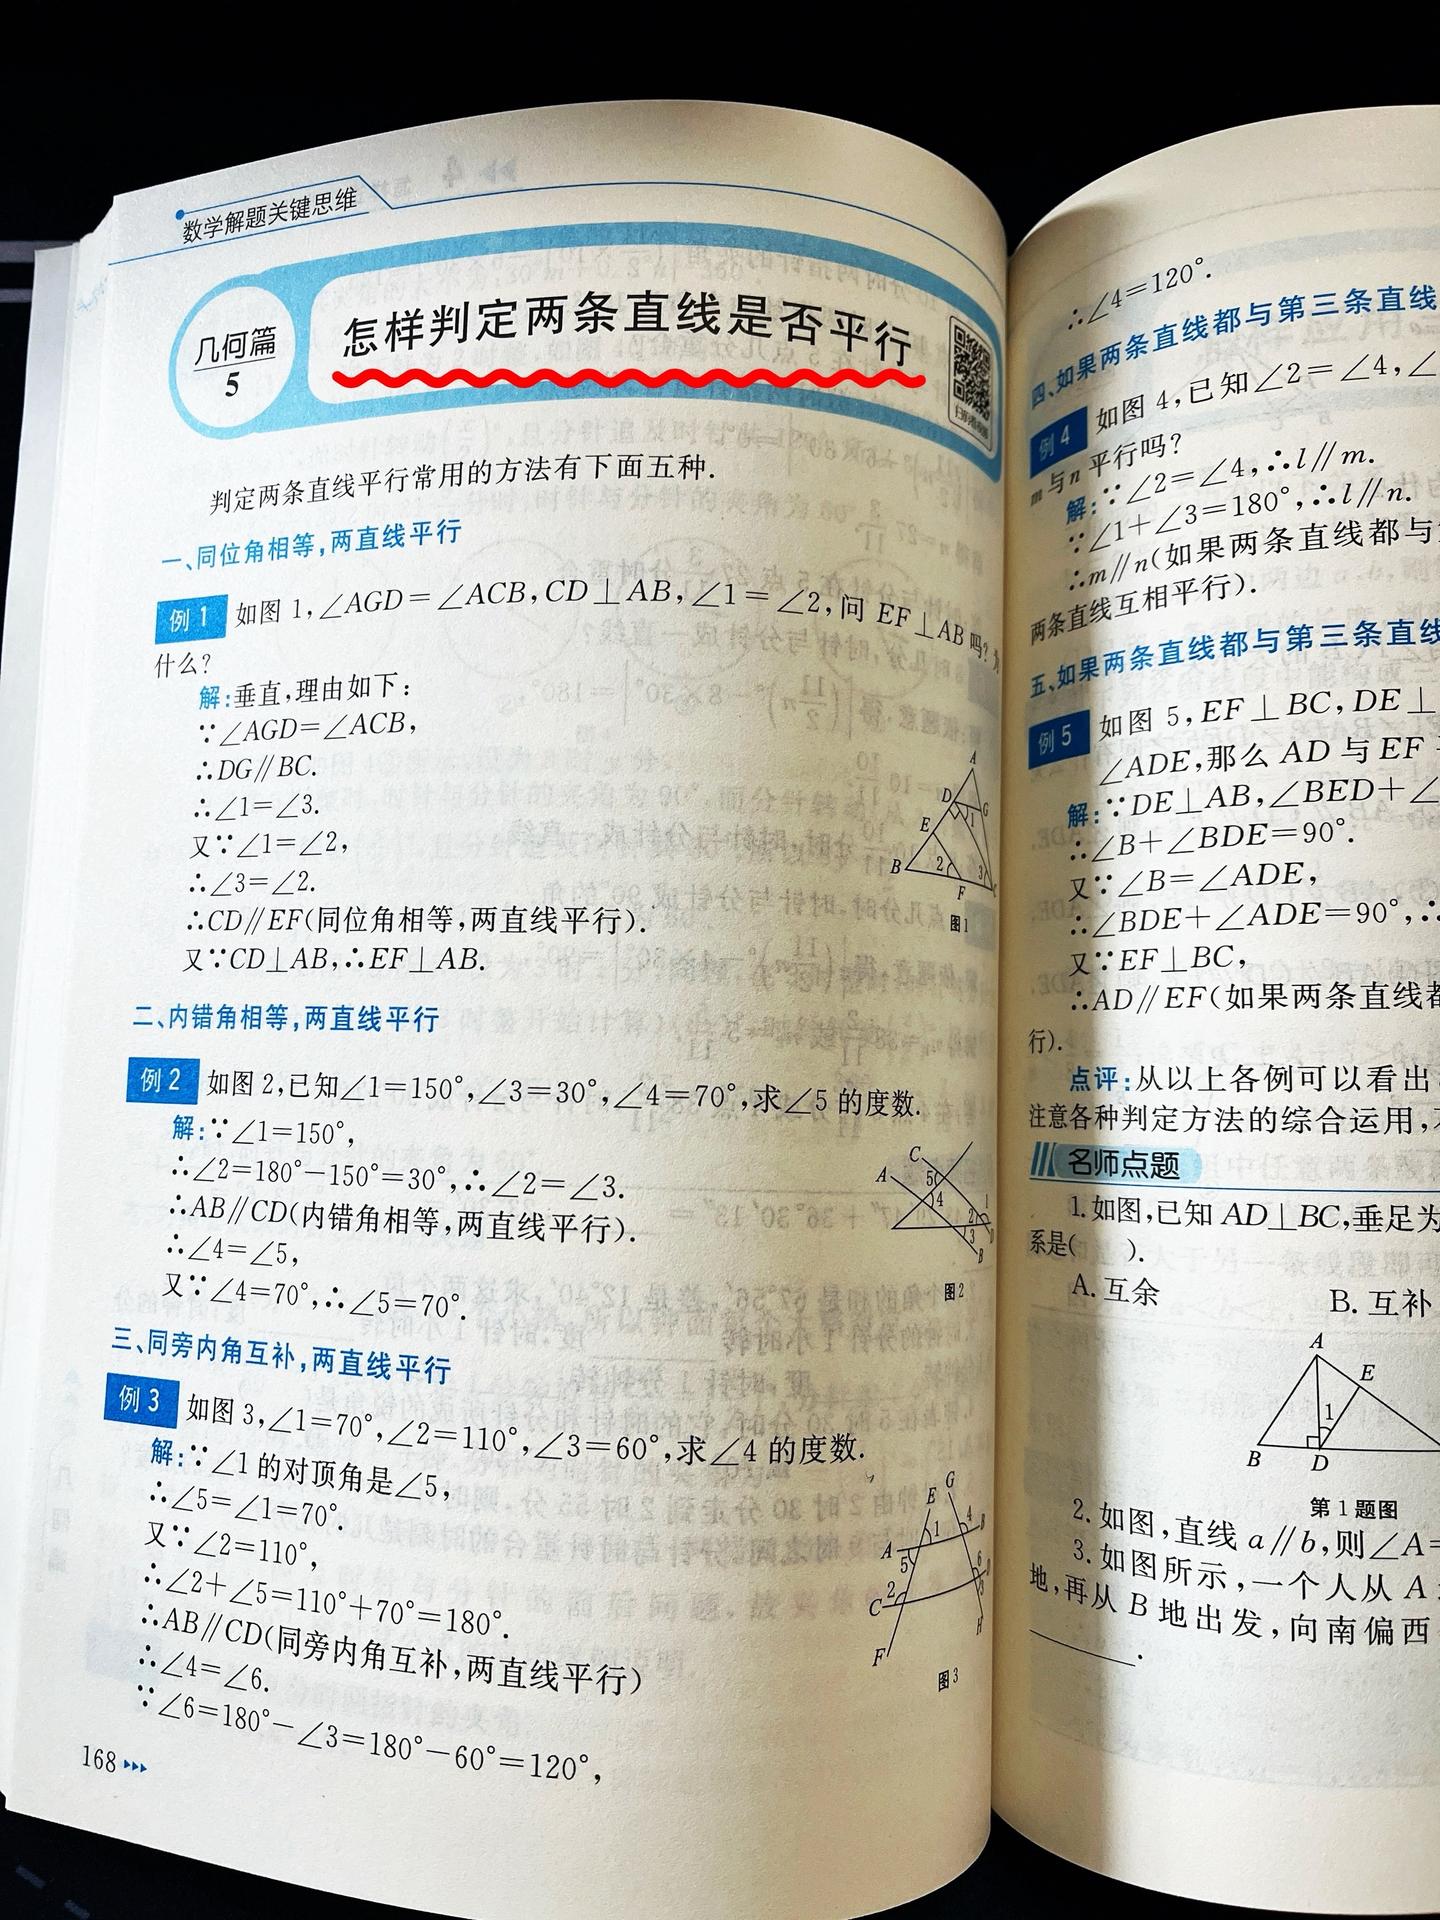 数学解题关键思维
几何篇
5
怎样判定两条直线是否平行
判定两条直线平行常用的方法有下面五种.
一、同位角相等,两直线平行
例1 如图1,∠AGD=∠ACB,CD⊥AB,∠1=∠2,问EF⊥AB吗?为
什么?
解:垂直,理由如下:
∵∠AGD=∠ACB,
∴DG∥BC.
∴∠1=∠3.
又∵∠1=∠2,
∴∠3=∠2.
∴CD∥EF(同位角相等,两直线平行).
又∵CD⊥AB,∴EF⊥AB.
A
D
G
1
E
B
2
3
F
C
图1
二、内错角相等,两直线平行
例2 如图2,已知∠1=150°,∠3=30°,∠4=70°,求∠5的度数.
解:∵∠1=150°,
∴∠2=180°-150°=30°,∴∠2=∠3.
∴AB∥CD(内错角相等,两直线平行).
∴∠4=∠5,
又∵∠4=70°,∴∠5=70°.
C
A
5
4
1
2
3
D
B
图2
三、同旁内角互补,两直线平行
例3 如图3,∠1=70°,∠2=110°,∠3=60°,求∠4的度数.
解:∵∠1的对顶角是∠5,
∴∠5=∠1=70°.
又∵∠2=110°,
∴∠2+∠5=110°+70°=180°.
∴AB∥CD(同旁内角互补,两直线平行)
∴∠4=∠6.
∵∠6=180°-∠3=180°-60°=120°,
G
E
4
B
1
A
5
6
D
2
3
C
H
F
图3
168
∴∠4=120°.
四、如果两条直线都与第三条直线
例4 如图4,已知∠2=∠4,∠
m与n平行吗?
解:∵∠2=∠4,∴l∥m.
∵∠1+∠3=180°,∴l∥n.
∴m∥n(如果两条直线都与
两条直线互相平行).
五、如果两条直线都与第三条直线
例5 如图5,EF⊥BC,DE⊥
∠ADE,那么AD与EF
解:∵DE⊥AB,∠BED+∠
∴∠B+∠BDE=90°.
又∵∠B=∠ADE,
∴∠BDE+∠ADE=90°,∴
又∵EF⊥BC,
∴AD∥EF(如果两条直线都
行).
点评:从以上各例可以看出
注意各种判定方法的综合运用,
名师点题
1.如图,已知AD⊥BC,垂足为
系是( ).
A.互余
B.互补
A
E
1
B
D
第1题图
2.如图,直线a∥b,则∠A=
3.如图所示,一个人从A
地,再从B地出发,向南偏西
.